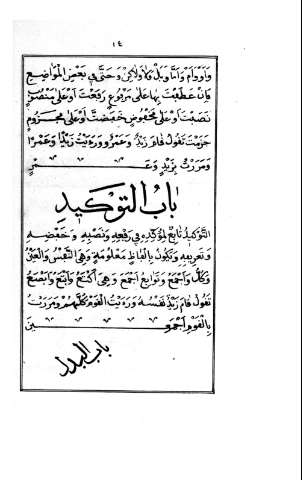 ١٤
وَاَوْ وَاَمْ وَاِمَّا وَبَلْ وَلَا وَلَكِنْ وَحَتَّى فِي بَعْضِ الْمَوَاضِعِ
فَاِنْ عَطَفْتَ بِهَا عَلَى مَرْفُوعٍ رَفَعْتَ اَوْ عَلَى مَنْصُوبٍ
نَصَبْتَ اَوْ عَلَى مَخْفُوضٍ خَفَضْتَ اَوْ عَلَى مَجْزُومٍ
جَزَمْتَ تَقُولُ قَامَ زَيْدٌ وَعَمْرٌو وَرَءَيْتُ زَيْدًا وَعَمْرًا
وَمَرَرْتُ بِزَيْدٍ وَعَمْرٍ
بَابُ التَّوْكِيدِ
التَّوْكِيدُ تَابِعٌ لِلْمُؤَكَّدِ فِي رَفْعِهِ وَنَصْبِهِ وَخَفْضِهِ
وَتَعْرِيفِهِ وَيَكُونُ بِاَلْفَاظٍ مَعْلُومَةٍ وَهِيَ النَّفْسُ وَالْعَيْنُ
وَكُلٌّ وَاَجْمَعُ وَتَوَابِعُ اَجْمَعَ وَهِيَ اَكْتَعُ وَاَبْتَعُ وَاَبْصَعُ
تَقُولُ قَامَ زَيْدٌ نَفْسُهُ وَرَءَيْتُ الْقَوْمَ كُلَّهُمْ وَمَرَرْتُ
بِالْقَوْمِ اَجْمَعِينَ
باب البدل